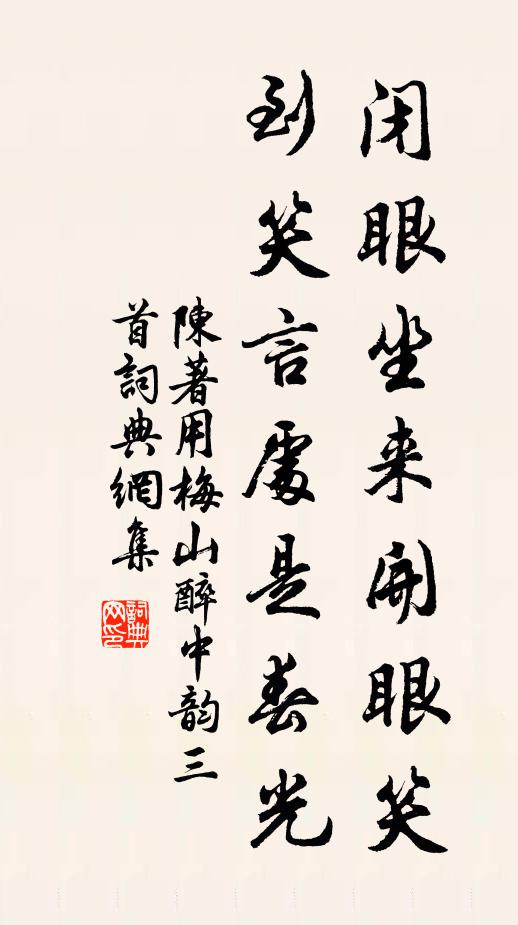 闭眼坐来開眼笑
到笑言處是春光
陳著用梅山醉中韵三
首詞典網集
詞典
网印